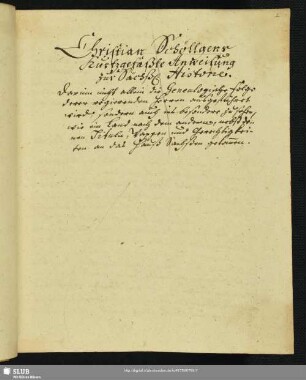 Christian Schöttgens
Kurtzgefaßte Anweisung
zur Sächß. Historie.
Darinn nicht allein die Genealogische Folge
derer regierenden Herren ausgeführet
wird, sondern auch insbesondere
wie ein Land nach dem andern, nebst
nen Tituln, Wappen und Gerechtigkei-
ten an das Hauß Sachßen gekomen.
SLUB